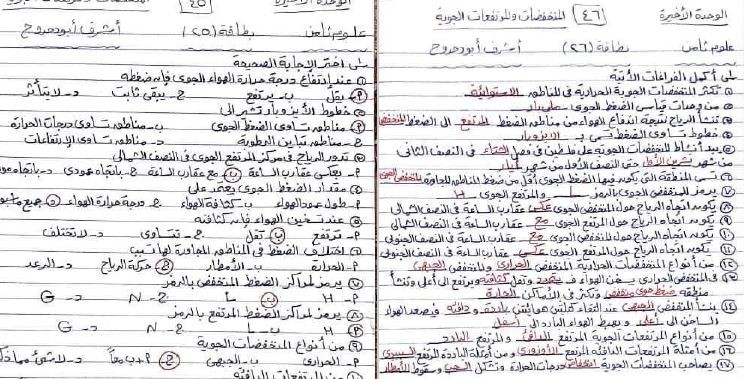 الوحدة الأخيرة (٤٦) المنخفضات والمرتفعات الجوية
علوم ثامن بطاقة (٢٦) أشرف أبو حدوح
س١ أكمل الفراغات الآتية
① تكثر المنخفضات الجوية الحرارية في المناطق الاستوائية
② من وحدات قياس الضغط الجوي مللي بار
③ تنشأ الرياح نتيجة اندفاع الهواء من مناطق الضغط المرتفع إلى الضغط المنخفض
④ خطوط تساوي الضغط تسمى بـ الأيزوبار
⑤ يبدأ نشاط المنخفضات الجوية على فلسطين في فصل الشتاء في النصف الثاني
من شهر تشرين الأول حتى النصف الأول من شهر أيار
⑥ تسمى المنطقة التي يكون فيها الضغط الجوي أقل من ضغط المناطق المجاورة بالمنخفض الجوي
⑦ يرمز للمنخفض الجوي بالرمز L والمرتفع الجوي H
⑧ يكون اتجاه الرياح حول المنخفض الجوي عكس عقارب الساعة في النصف الشمالي
⑨ يكون اتجاه الرياح حول المرتفع الجوي مع عقارب الساعة في النصف الشمالي
⑩ يكون اتجاه الرياح حول المنخفض الجوي مع عقارب الساعة في النصف الجنوبي
⑪ يكون اتجاه الرياح حول المرتفع الجوي عكس عقارب الساعة في النصف الجنوبي
⑫ من أنواع المنخفضات الحرارية المنخفض الحراري والمنخفض الجبهي
⑬ في المنخفض الحراري يسخن الهواء فـ يتمدد وتقل كثافته ويرتفع إلى أعلى وتنشأ
منطقة ضغط جوي منخفض وتكثر في الأماكن الحارة
⑭ ينشأ المنخفض الجبهي عند التقاء كتلتين هوائيتين باردة و دافئة فيصعد الهواء
الساخن إلى أعلى و يهبط الهواء البارد إلى أسفل
⑮ من أنواع المرتفعات الجوية المرتفع الدافئ والمرتفع البارد
⑯ من أمثلة المرتفعات الدافئة المرتفع الأزوري و من أمثلة الباردة المرتفع السيبيري
⑰ يصاحب المنخفضات الجوية انخفاض درجات الحرارة وتشكل السحب وسقوط الأمطار
الوحدة الأخيرة (٤٥)
علوم ثامن بطاقة (٢٥) أشرف أبو حدوح
س١ اختر الإجابة الصحيحة
① عند ارتفاع درجة حرارة الهواء الجوي فإن ضغطه
أ- يقل ب- يرتفع ج- يبقى ثابت د- لا يتأثر
② خطوط الأيزوبار تشير إلى
أ- مناطق تساوي الضغط الجوي ب- مناطق تساوي درجات الحرارة
ج- مناطق تباين الرطوبة د- مناطق تساوي الارتفاعات
③ تدور الرياح في مركز المرتفع الجوي في النصف الشمالي
أ- بعكس عقارب الساعة ب- مع عقارب الساعة ج- باتجاه عمودي د- باتجاه
④ مقدار الضغط الجوي يعتمد على
أ- طول عمود الهواء ب- كثافة الهواء ج- درجة حرارة الهواء د- جميع ما
⑤ عند تسخين الهواء فإن كثافته
أ- ترتفع ب- تقل ج- تتساوى د- لا تختلف
⑥ اختلاف الضغط في المناطق المجاورة لها تسبب
أ- الحرارة ب- الأمطار ج- حركة الرياح د- الرعد
⑦ يرمز لمراكز الضغط المنخفض بالرمز
أ- H ب- L ج- N د- G
⑧ يرمز لمراكز الضغط المرتفع بالرمز
أ- H ب- L ج- N د- G
⑨ من أنواع المنخفضات الجوية
أ- الحراري ب- الجبهي ج- أ+ب معاً د- لا شيء مما ذكر
⑩ من المرتفعات الدافئة